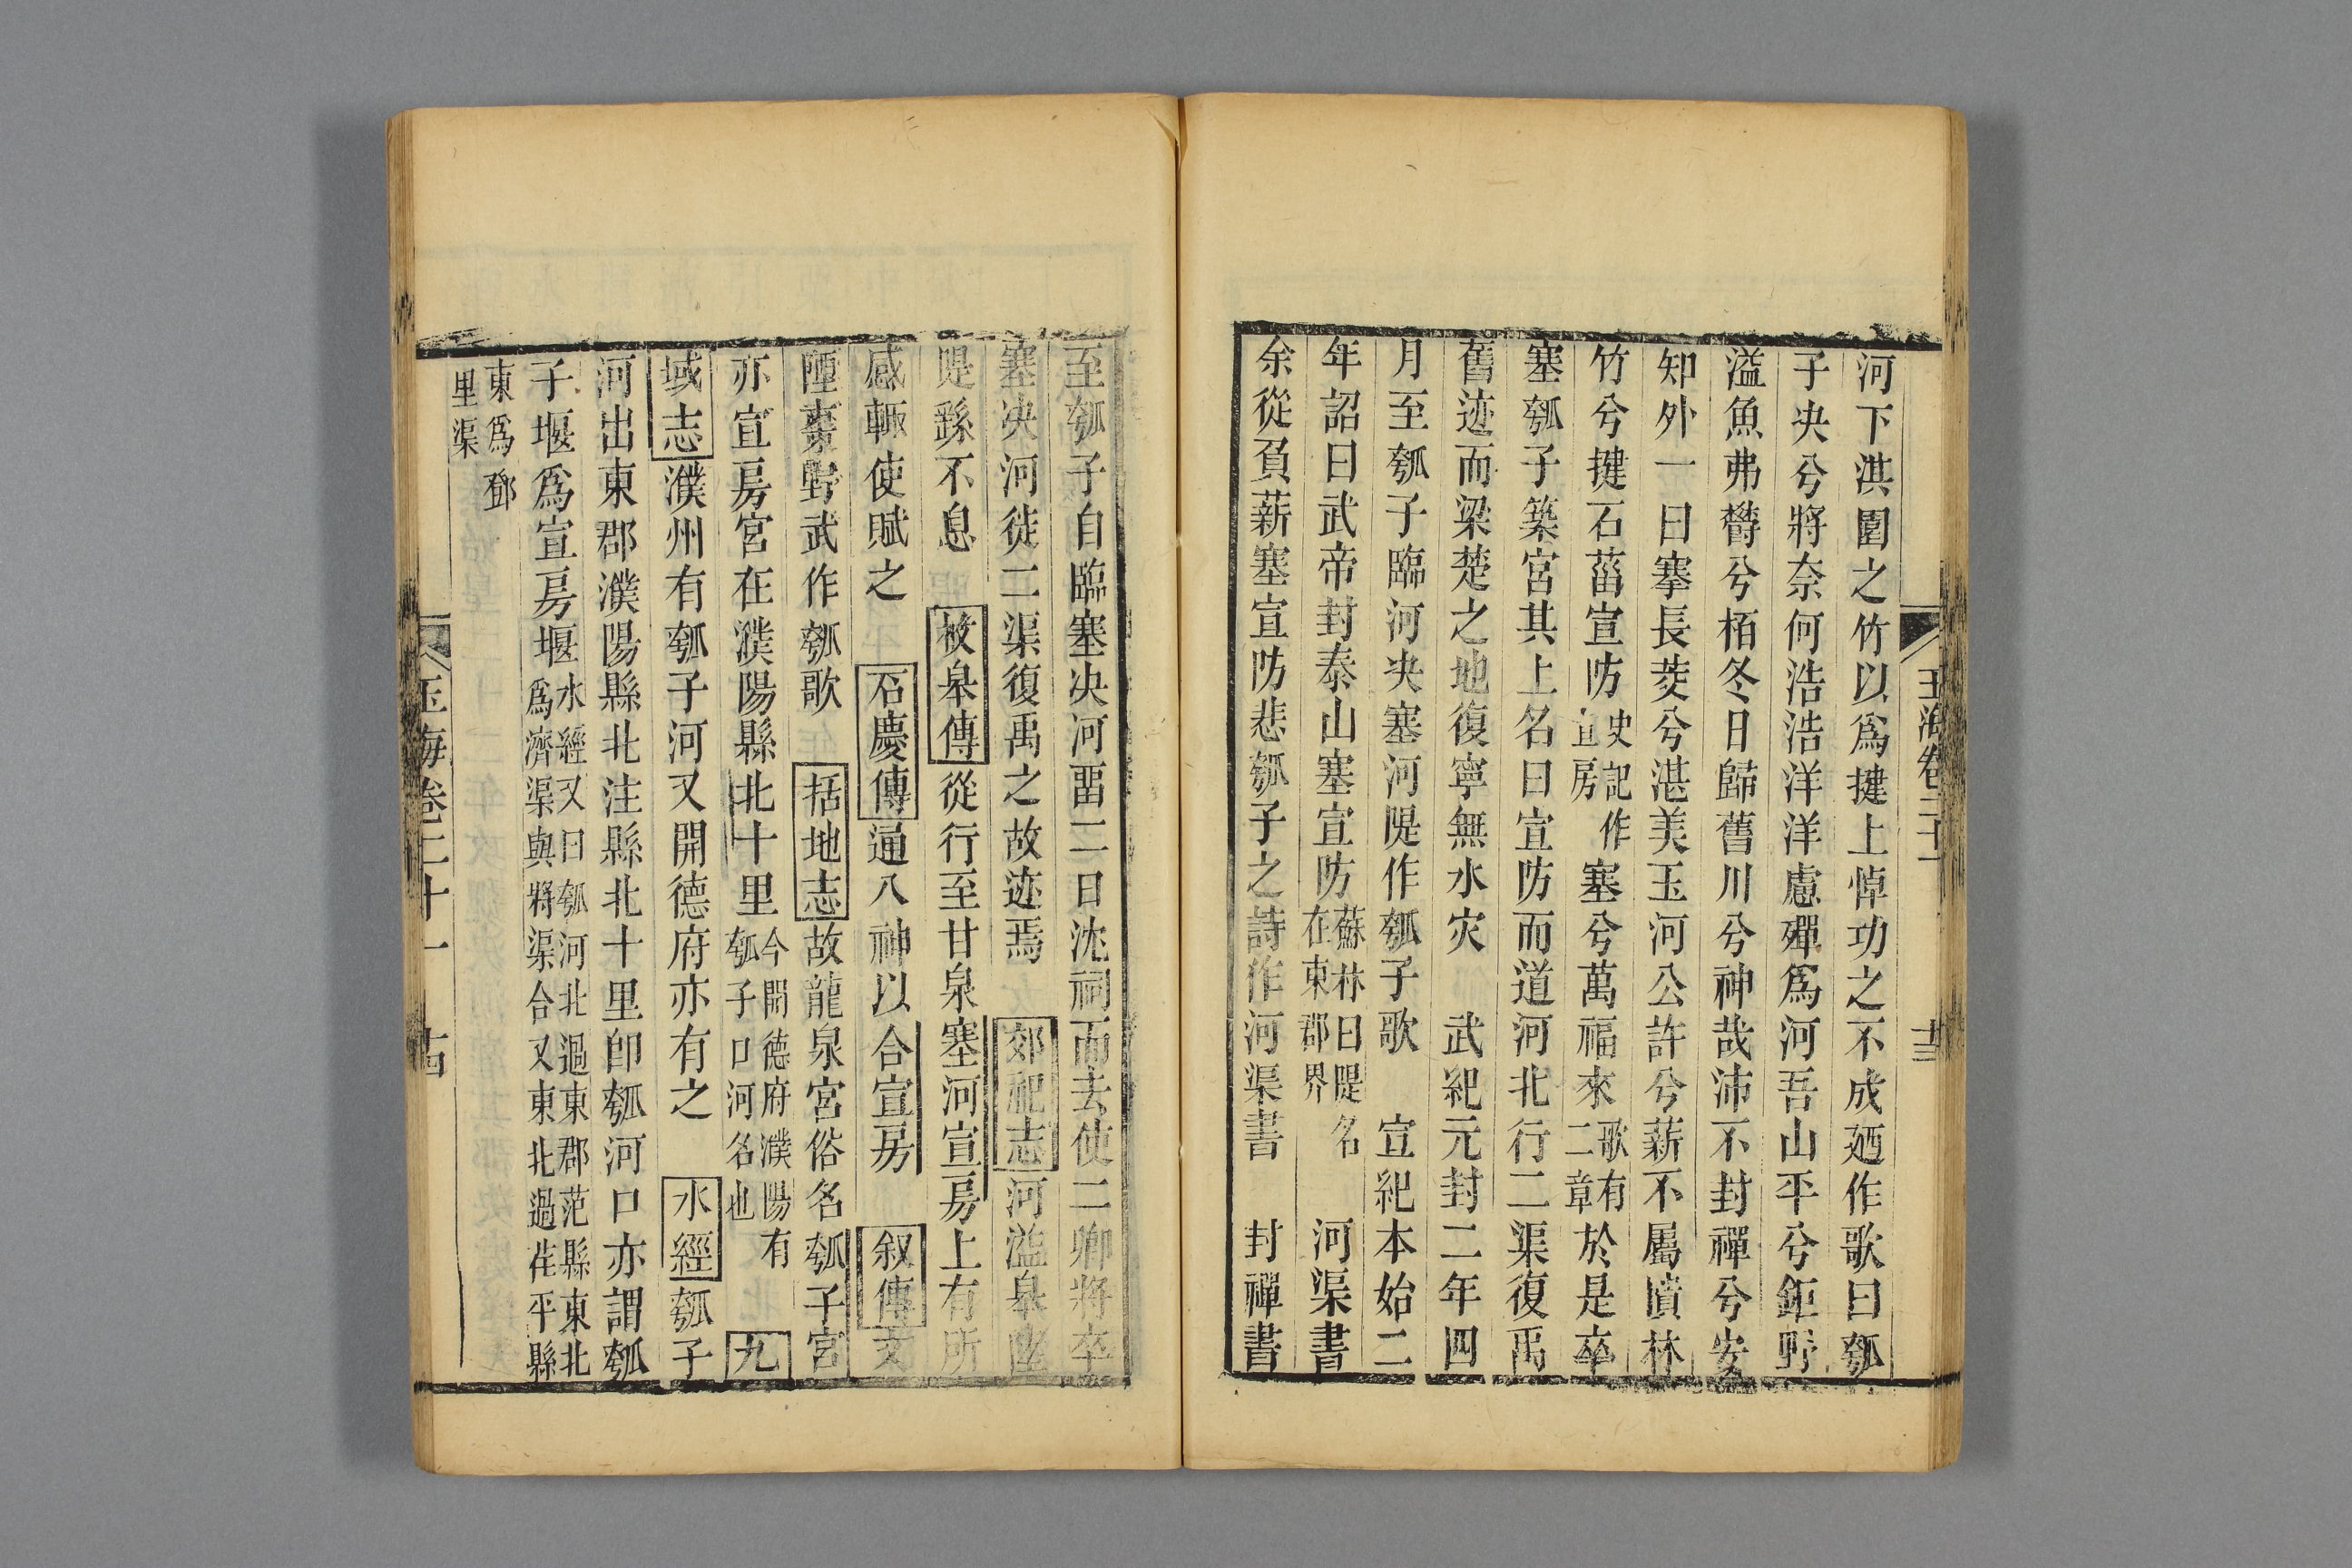 玉海卷二十一 十三
河下淇園之竹以爲揵上悼功之不成廼作歌曰瓠
子决兮將奈何浩浩洋洋慮殫爲河吾山平兮鉅野
溢魚弗欎兮栢冬日歸舊川兮神哉沛不封禪兮安
知外一曰搴長茭兮湛美玉河公許兮薪不屬隤林
竹兮揵石菑宣防史記作宣房塞兮萬福來歌有二章於是卒
塞瓠子築宮其上名曰宣防而道河北行二渠復禹
舊迹而梁楚之地復寧無水灾 武紀元封二年四
月至瓠子臨河决塞河隄作瓠子歌 宣紀本始二
年詔曰武帝封泰山塞宣防蘇林曰隄名在東郡界 河渠書
余從負薪塞宣防悲瓠子之詩作河渠書 封禪書
至瓠子自臨塞决河畱二日沈祠而去使二卿將卒
塞决河徙二渠復禹之故迹焉 郊祀志河溢皋陸
隄繇不息 枚皋傳從行至甘泉塞河宣房上有所
感輙使賦之 石慶傳通八神以合宣房 叙傳文
陻棗野武作瓠歌 括地志故龍泉宮俗名瓠子宮
亦宣房宮在濮陽縣北十里今開德府濮陽有瓠子口河名也 九
域志濮州有瓠子河又開德府亦有之 水經瓠子
河出東郡濮陽縣北注縣北十里卽瓠河口亦謂瓠
子堰爲宣房堰水經又曰瓠河北過東郡范縣東北爲濟渠與將渠合又東北過茌平縣
東爲鄧里渠
玉海卷二十一 十四